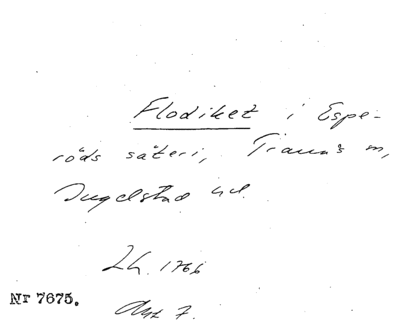 Flodiket i Espe-
röds säteri, Tranås sn,
Ingelstad hd.
Lh. 1766
Nr 7675. Akt 7.